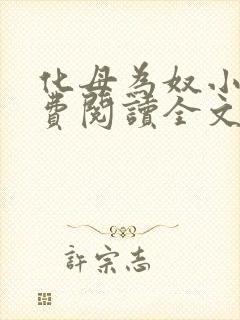 化母為奴小
費閱讀全文
許宗志